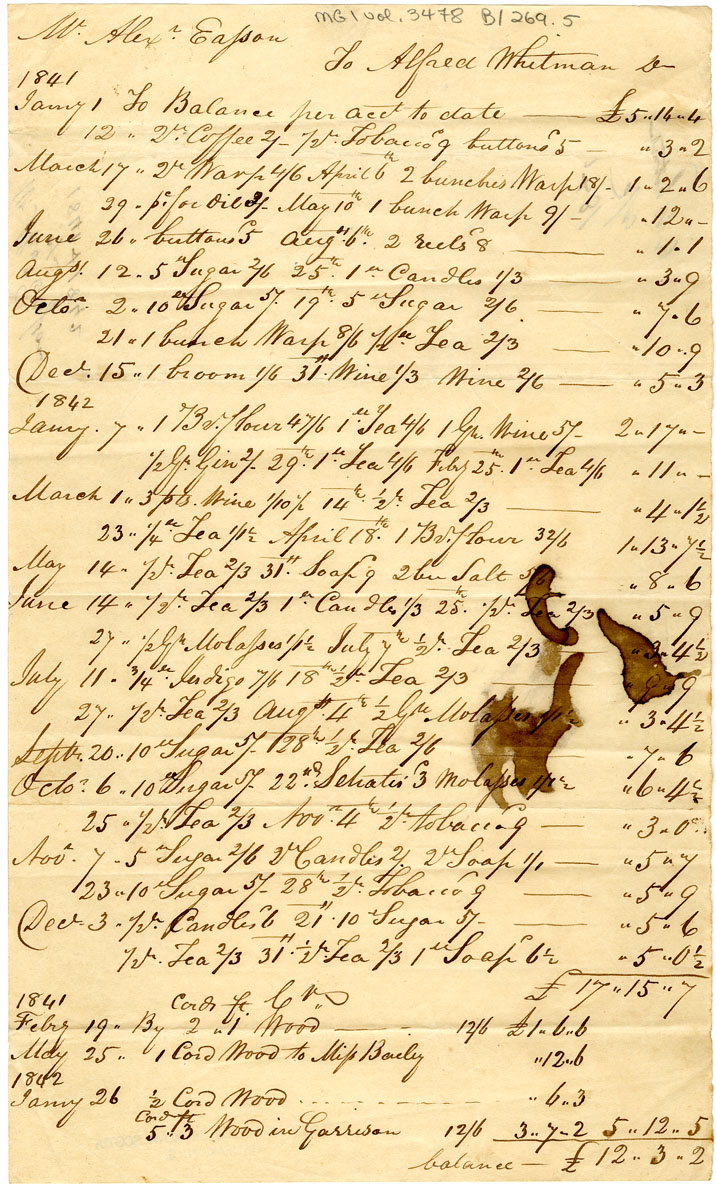 MG 1 vol. 3478 B/269.5
Mr. Alexr. Easson
To Alfred Whitman Dr
1841
Jany 1 To Balance per acct to date £5 " 14 " 4
12 " 2 lb. Coffee 2/- 1/2 lb. Tobacco 9 buttons 5 " 3 " 2
March 17 " 2 lb Warp 4/6 April 6th 2 bunches Warp 18/- 1 " 2 " 6
29 " pr for Oil 3/- May 10th 1 bunch Warp 9/- " 12 " -
June 26 " buttons 5 Augst 6th. 2 reels 8 " 1 " 1
Augst. 12 " 5 lb Sugar 2/6 25th 1 lb Candles 1/3 " 3 " 9
Octor 2 " 10 lb Sugar 5/- 19th 5 lb Sugar 2/6 " 7 " 6
21 " 1 bunch Warp 8/6 1/2 lb Tea 2/3 " 10 " 9
Decr. 15 " 1 broom 1/6 31st Wine 1/3 Wine 2/6 " 5 " 3
1842
Jany. 7 " 1 Bl. flour 47/6 1 lb Tea 4/6 1 Gn. Wine 5/- 2 " 17 " -
1/2 Gn Gin 2/- 29th 1 lb Tea 4/6 Feby 25th 1 lb Tea 4/6 " 11 " -
March 1 " 3 pts. Wine 1/10 1/2 14th 1/2 lb. Tea 2/3 " 4 " 1 1/2
23 " 1/4 lb Tea 1/1 1/2 April 18th 1 Bl. flour 32/6 1 " 13 " 7 1/2
May 14 " 1/2 lb. Tea 2/3 31st. Soap 9 2 bu Salt 5/6 " 8 " 6
June 14 " 1/2 lb. Tea 2/3 1 lb Candles 1/3 25th. 1/2 lb. Tea 2/3 " 5 " 9
27 " 1/2 Gn Molasses 1/1 1/2 July 7th 1/2 lb. Tea 2/3 " 3 " 4 1/2
July 11 " 3/4 lb Indigo 7/6 18th 1/2 lb Tea 2/3 " 9 " 9
27 " 1/2 lb. Tea 2/3 Augst 4th 1/2 Gn Molasses 1/1 1/2 " 3 " 4 1/2
Septr. 20 " 10 lb Sugar 5/- 28th 1/2 lb. Tea 2/6 " 7 " 6
Octor. 6 " 10 lb Sugar 5/- 22nd 3 Molasses 1/1 1/2 " 6 " 4 1/2
25 " 1/2 lb. Tea 2/3 Novr 4th 1/2 lb tobacco 9 " 3 " 0
Novr. 7 " 5 lb Sugar 2/6 2 lb Candles 2/. 2 lb Soap 1/1 " 5 " 7
23 " 10 lb Sugar 5/- 28th 1/2 lb. Tobacco 9 " 5 " 9
Decr. 3 " 1/2 lb. Candles 6 21st 10 lb Sugar 5/- " 5 " 6
1/2 lb. Tea 2/3 31st 1/2 lb Tea 2/3 1 lb Soap 6 1/2 " 5 " 0 1/2
£ 17 " 15 " 7
1841 Cords ft. Cr
Feby 19 " By 2 " 1 Wood 12/6 £1 " 6 " 6
May 25 " 1 Cord Wood to Miss Baily " 12 " 6
1842
Jany 26 1/2 Cord Wood " 6 " 3
Cord ft
5 " 3 Wood in Garrison 12/6 3 " 7 " 2 5 " 12 " 5
balance £ 12 " 3 " 2